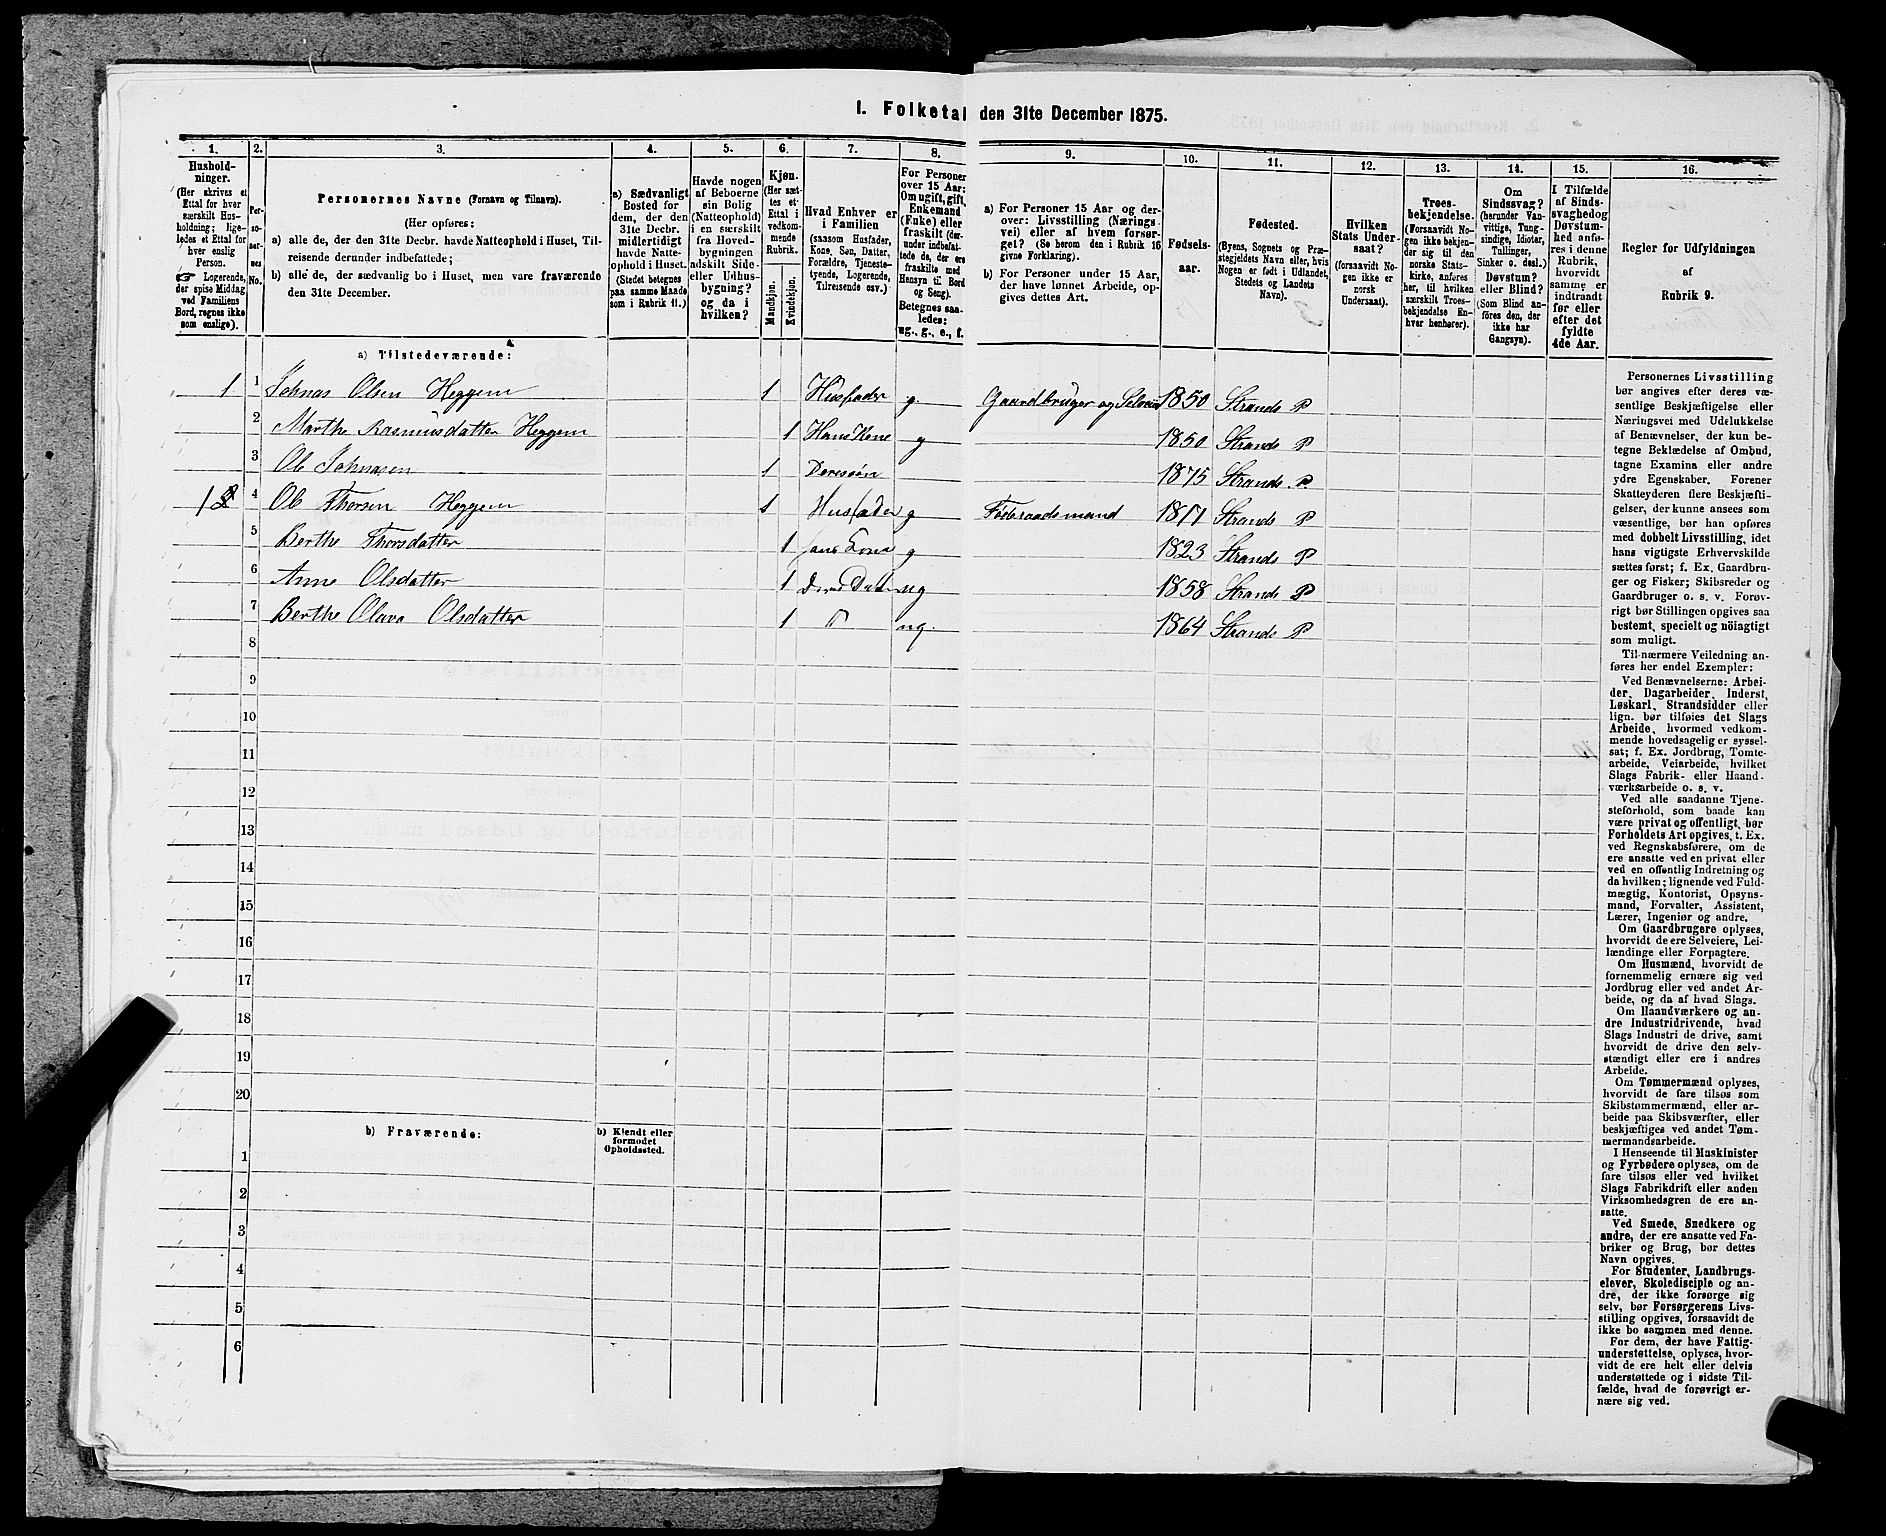 I. Folketal den 31te December 1875.
1. 2. 3. 4. 5. 6. 7. 8. 9. 10. 11. 12. 13. 14. 15. 16.
Husholdninger.
(Her skrives et
Ettal for hver
særskilt Husholdning;
ligeledes et Ettal for
hver enslig
Person.
☞ Logerende,
der spise Middag
ved Familiens
Bord, regnes ikke
som enslige).
Personernes No.
Personernes Navne (Fornavn og Tilnavn).
(Her opføres:
a) alle de, der den 31te Decbr. havde Natteophold i Huset, Tilreisende derunder indbefattede;
b) alle de, der sædvanlig bo i Huset, men vare fraværende
den 31te December.
a) Sædvanligt
Bosted for
dem, der den
31te Decbr.
midlertidigt
havde Natteophold
i Huset.
(Stedet betegnes
paa samme Maade
som i Rubrik 11.)
Havde nogen
af Beboerne
sin Bolig
(Natteophold)
i en særskilt
fra Hovedbygningen
adskilt Side-
eller Udhusbygning?
og da i
hvilken?
Kjøn.
(Her sættes
et
Ettal i
vedkommende
Rubrik.
Mandkjøn.
Kvindekjøn.
Hvad Enhver er
i Familien
(saasom Husfader,
Kone, Søn, Datter,
Forældre, Tjenestetyende,
Logerende,
Tilreisende osv.)
For Personer
over 15 Aar:
Om ugift, gift,
Enkemand
(Enke) eller
fraskilt (derunder
indbefattede
de, der ere
fraskilte med
Hensyn til Bord
og Seng).
Betegnes saaledes:
ug., g., e., f.
a) For Personer 15 Aar og derover:
Livsstilling (Næringsvei)
eller af hvem forsørget?
(Se herom den i Rubrik 16
givne Forklaring).
b) For Personer under 15 Aar,
der have lønnet Arbeide, opgives
dettes Art.
Fødselsaar.
Fødested.
(Byens, Sognets og Præstegjeldets
Navn eller, hvis
Nogen er født i Udlandet,
Stedets og Landets
Navn).
Hvilken
Stats Undersaat?
(forsaavidt Nogen
ikke er
norsk
Undersaat).
Troesbekjendelse.
(Forsaavidt Nogen
ikke bekjender
sig til den
norske Statskirke,
anføres
her, til hvilken
særskilt Troesbekjendelse
Enhver
henhører).
Om
Sindssvag?
(herunder Vanvittige,
Tungsindige,
Idioter,
Tullinger,
Sinker o. desl.)
Døvstum?
eller Blind?
(Som Blind anføres
den, der
ikke har
Gangsyn).
I Tilfælde
af Sindssvaghed
og
Døvstumhed
anføres
i denne
Rubrik,
hvorvidt
samme er
indtraadt
før eller
efter det
fyldte
4de Aar.
Regler for Udfyldningen
af
Rubrik 9.
a) Tilstedeværende:
1 1 Johnas Olsen Heggem 1 Husfader g. Gaardbruger og Selveier 1850 Strands P
2 Marthe Rasmusdatter Heggem 1 Hans Kone g 1850 Strands P
3 Ole Johnasen 1 Deressøn 1875 Strands P.
1 4 Ole Thorsen Heggem 1 Husfader g Føderaadsmand 1811 Strands P
5 Berthe Thorsdatter 1 Kone g 1823 Strands P
6 Anne Olsdatter 1 ug 1858 Strands P
7 Berthe Olava Olsdatter 1 ug. 1864 Strands P
8
9
10
11
12
13
14
15
16
17
18
19
20
b) Fraværende:
b) Kjendt eller
formodet
Opholdssted.
1
2
3
4
5
6
Personernes Livsstilling
bør angives efter deres væsentlige
Beskjæftigelse eller
Næringsvei med Udelukkelse
af Benævnelser, der kun betegne
Beklædelse af Ombud,
tagne Examina eller andre
ydre Egenskaber. Forener
Skatteyderen flere Beskjæftigelser,
der kunne ansees som
væsentlige, bør han opføres
med dobbelt Livsstilling, idet
hans vigtigste Erhvervskilde
sættes først; f. Ex. Gaardbruger
og Fisker; Skibsreder og
Gaardbruger o. s. v. Forøvrigt
bør Stillingen opgives saa
bestemt, specielt og nöiagtigt
som muligt.
Til nærmere Veiledning anføres
her endel Exempler:
Ved Benævnelserne: Arbeider,
Dagarbeider, Inderst,
Løskarl, Strandsidder eller
lign. bør tilføies det Slags
Arbeide, hvormed vedkommende
hovedsagelig er sysselsat;
f. Ex. Jordbrug, Tomtearbeide,
Veiarbeide, hvilket
Slags Fabrik- eller Haandværksarbeide
o. s. v.
Ved alle saadanne Tjenesteforhold,
som baade kan
være privat og offentligt, bør
Forholdets Art opgives, t. Ex.
ved Regnskabsførere, om de
ere ansatte ved en privat eller
ved en offentlig Indretning og
da hvilken; lignende ved Fuldmægtig,
Kontorist, Opsynsmand,
Forvalter, Assistent,
Lærer, Ingeniør og andre.
Om Gaardbrugere oplyses,
hvorvidt de ere Selveiere, Leilændinge
eller Forpagtere.
Om Husmænd, hvorvidt de
fornemmelig ernære sig ved
Jordbrug eller ved andet Arbeide,
og da af hvad Slags.
Om Haandværkere og andre
Industridrivende, hvad
Slags Industri de drive, samt
hvorvidt de drive den selvstændigt
eller ere i andres
Arbeide.
Om Tømmermænd oplyses,
hvorvidt de fare tilsøs som
Skibstømmermænd, eller arbeide
paa Skibsværfter, eller
beskjæftiges ved andet Tømmermandsarbeide.
I Henseende til Maskinister
og Fyrbødere oplyses, om de
fare tilsøs eller ved hvilket
Slags Fabrikdrift eller anden
Virksomhedsgren de ere ansatte.
Ved Smede, Snedkere og
andre, der ere ansatte ved Fabriker
og Brug, bør dettes
Navn opgives.
For Studenter, Landbrugselever,
Skoledisciple og andre,
der ikke forsørge sig
selv, bør Forsørgerens Livsstilling
opgives, forsaavidt de
ikke bo sammen med denne.
For dem, der have Fattigunderstøttelse,
oplyses, hvorvidt
de ere helt eller delvis
understøttede og i sidste Tilfælde,
hvad de forøvrigt ernære
sig ved.